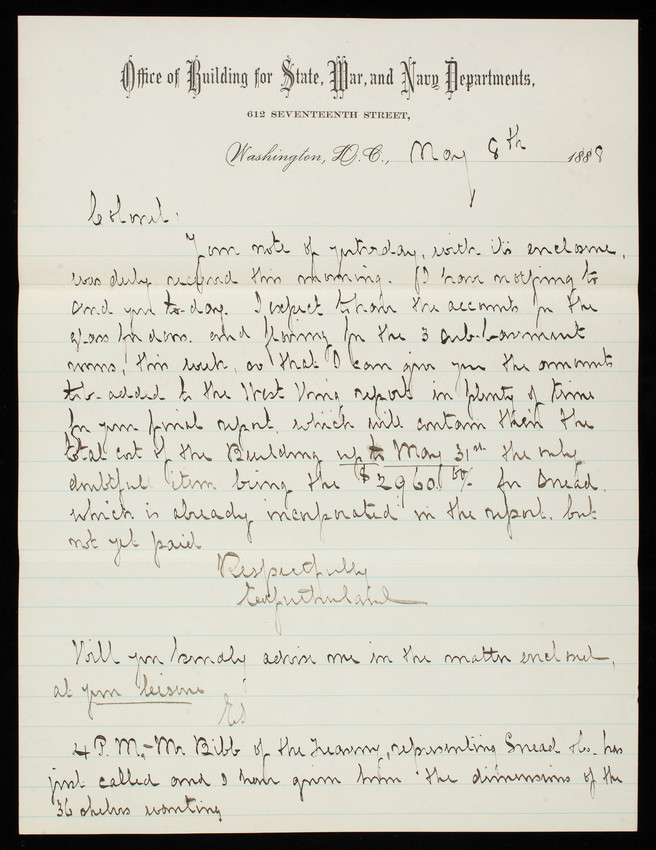 Office of Building for State, War, and Navy Departments,
612 SEVENTEENTH STREET,
Washington, D.C., May 8th 1888
Colonel:
Your note of yesterday, with its enclosure,
was duly received this morning. I have nothing to
send you to-day. I expect to have the accounts for the
glass for doors and flooring for the 3 sub-basement
rooms, this week, so that I can give you the amounts
to be added to the West Wing report in plenty of time
for your final report, which will contain then the
total cost of the Building up to May 31st the only
doubtful item being the $2,960.50/ for Snead.
which is already incorporated in the report, but
not yet paid
Respectfully

Will you kindly advise me in the matter enclosed,
at your leisure
4 P.M. - Mr Bibb of the Treasury, representing Snead & Co. has
just called and I have given him the dimensions of the
36 shelves wanting